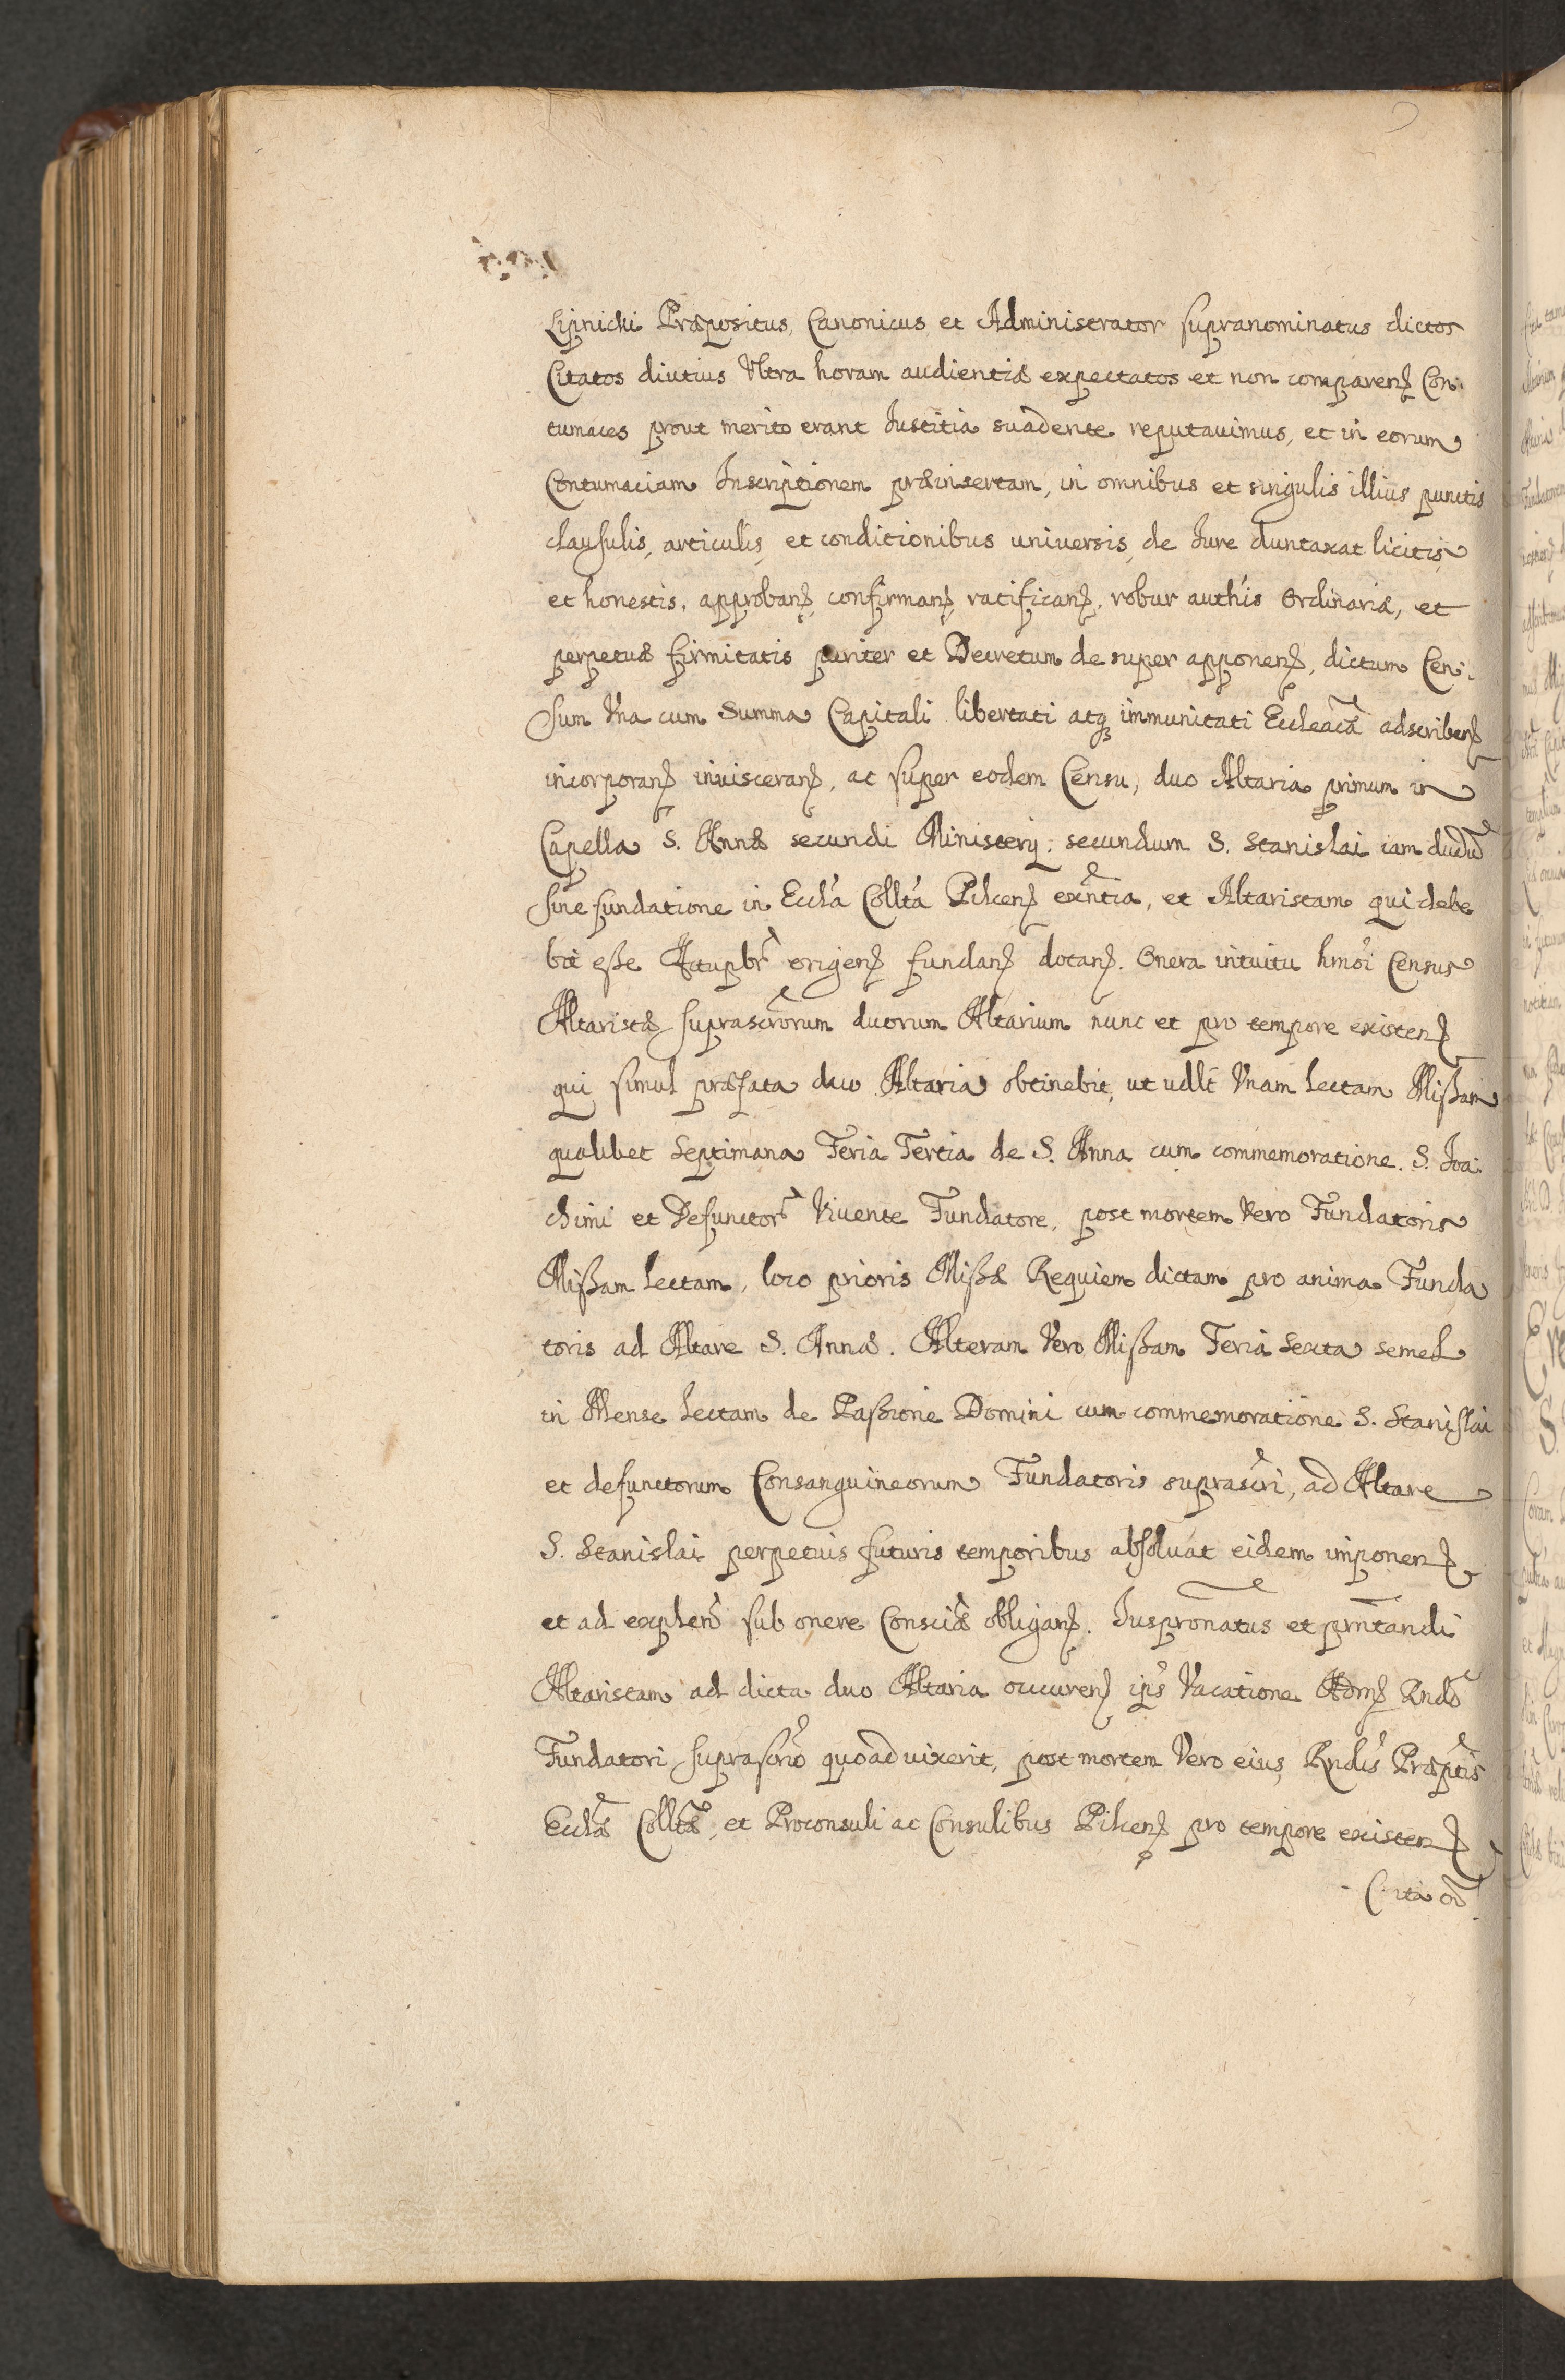 Lipnicki Præpositus, Canonicus et Administrator supranominatus dictos
Citatos diutius Vltra horam audientiæ expectatos et non comparen̄ Con:
tumaces prout merito erant Iustitia suadente reputauimus, et in eorum
Contumaciam Inscriptionem præinsertam, in omnibus et singulis illius punctis
clausulis, articulis, et conditionibus uniuersis, de Iure duntaxat licitis,
et honestis, approban̄, confirman̄, ratifican̄, robur auth'is Ordinariæ, et
perpetuæ firmitatis pariter et Decretum de super apponen̄, dictum Cen:
sum Vna cum Summa Capitali libertati atq; immunitati Eccleacæ̃ adscriben̄
incorporan̄ inuisceran̄, ac super eodem Censu, duo Altaria primum in
Capella S. Annæ secundi Ministerij: secundum S. Stanislai iam dudū
sine fundatione in Eccl'a Coll'ta Pilcen̄ exn̄tia, et Altaristam qui debe
bit esse origen̄ fundan̄ dotan̄. Onera intuitu hmõi Census
Altaristæ suprascrõrum duorum Altarium nunc et pro tempore existen̄
qui simul præfata duo Altaria obtinebit, ut udlt Vnam lectam Missam
qualibet Septimana Feria Tertia de S. Anna cum commemoratione. S. Ioa:
chimi et Defunctor̃ Viuente Fundatore, post mortem Vero Fundatoris
Missam lectam, loco prioris Missæ Requiem dictam pro anima Funda
toris ad Altare S. Annæ. Alteram Vero Missam Feria Sexta semel
in Mense lectam de Passione Domini cum commemoratione S. Stanislai
et defunctorum Consanguineorum Fundatoris suprascr̃i, ad Altare
S. Stanislai perpetuis futuris temporibus absoluat eidem imponen̄
et ad explen̄ sub onere Consciæ̃ obligan̄. Iuspron̄atus et prn̄tandi
Altaristam ad dicta duo Altaria occuren̄ ip̃s Vacatione Adm̄ Rndõ
Fundatori suprascrõ quoad uixerit, post mortem Vero eius, Rndis Præptis
Ecclæ̃ Colltæ̃, et Proconsuli ac Consulibus Pilcen̄ pro tempore existen̄
(ita qd̃